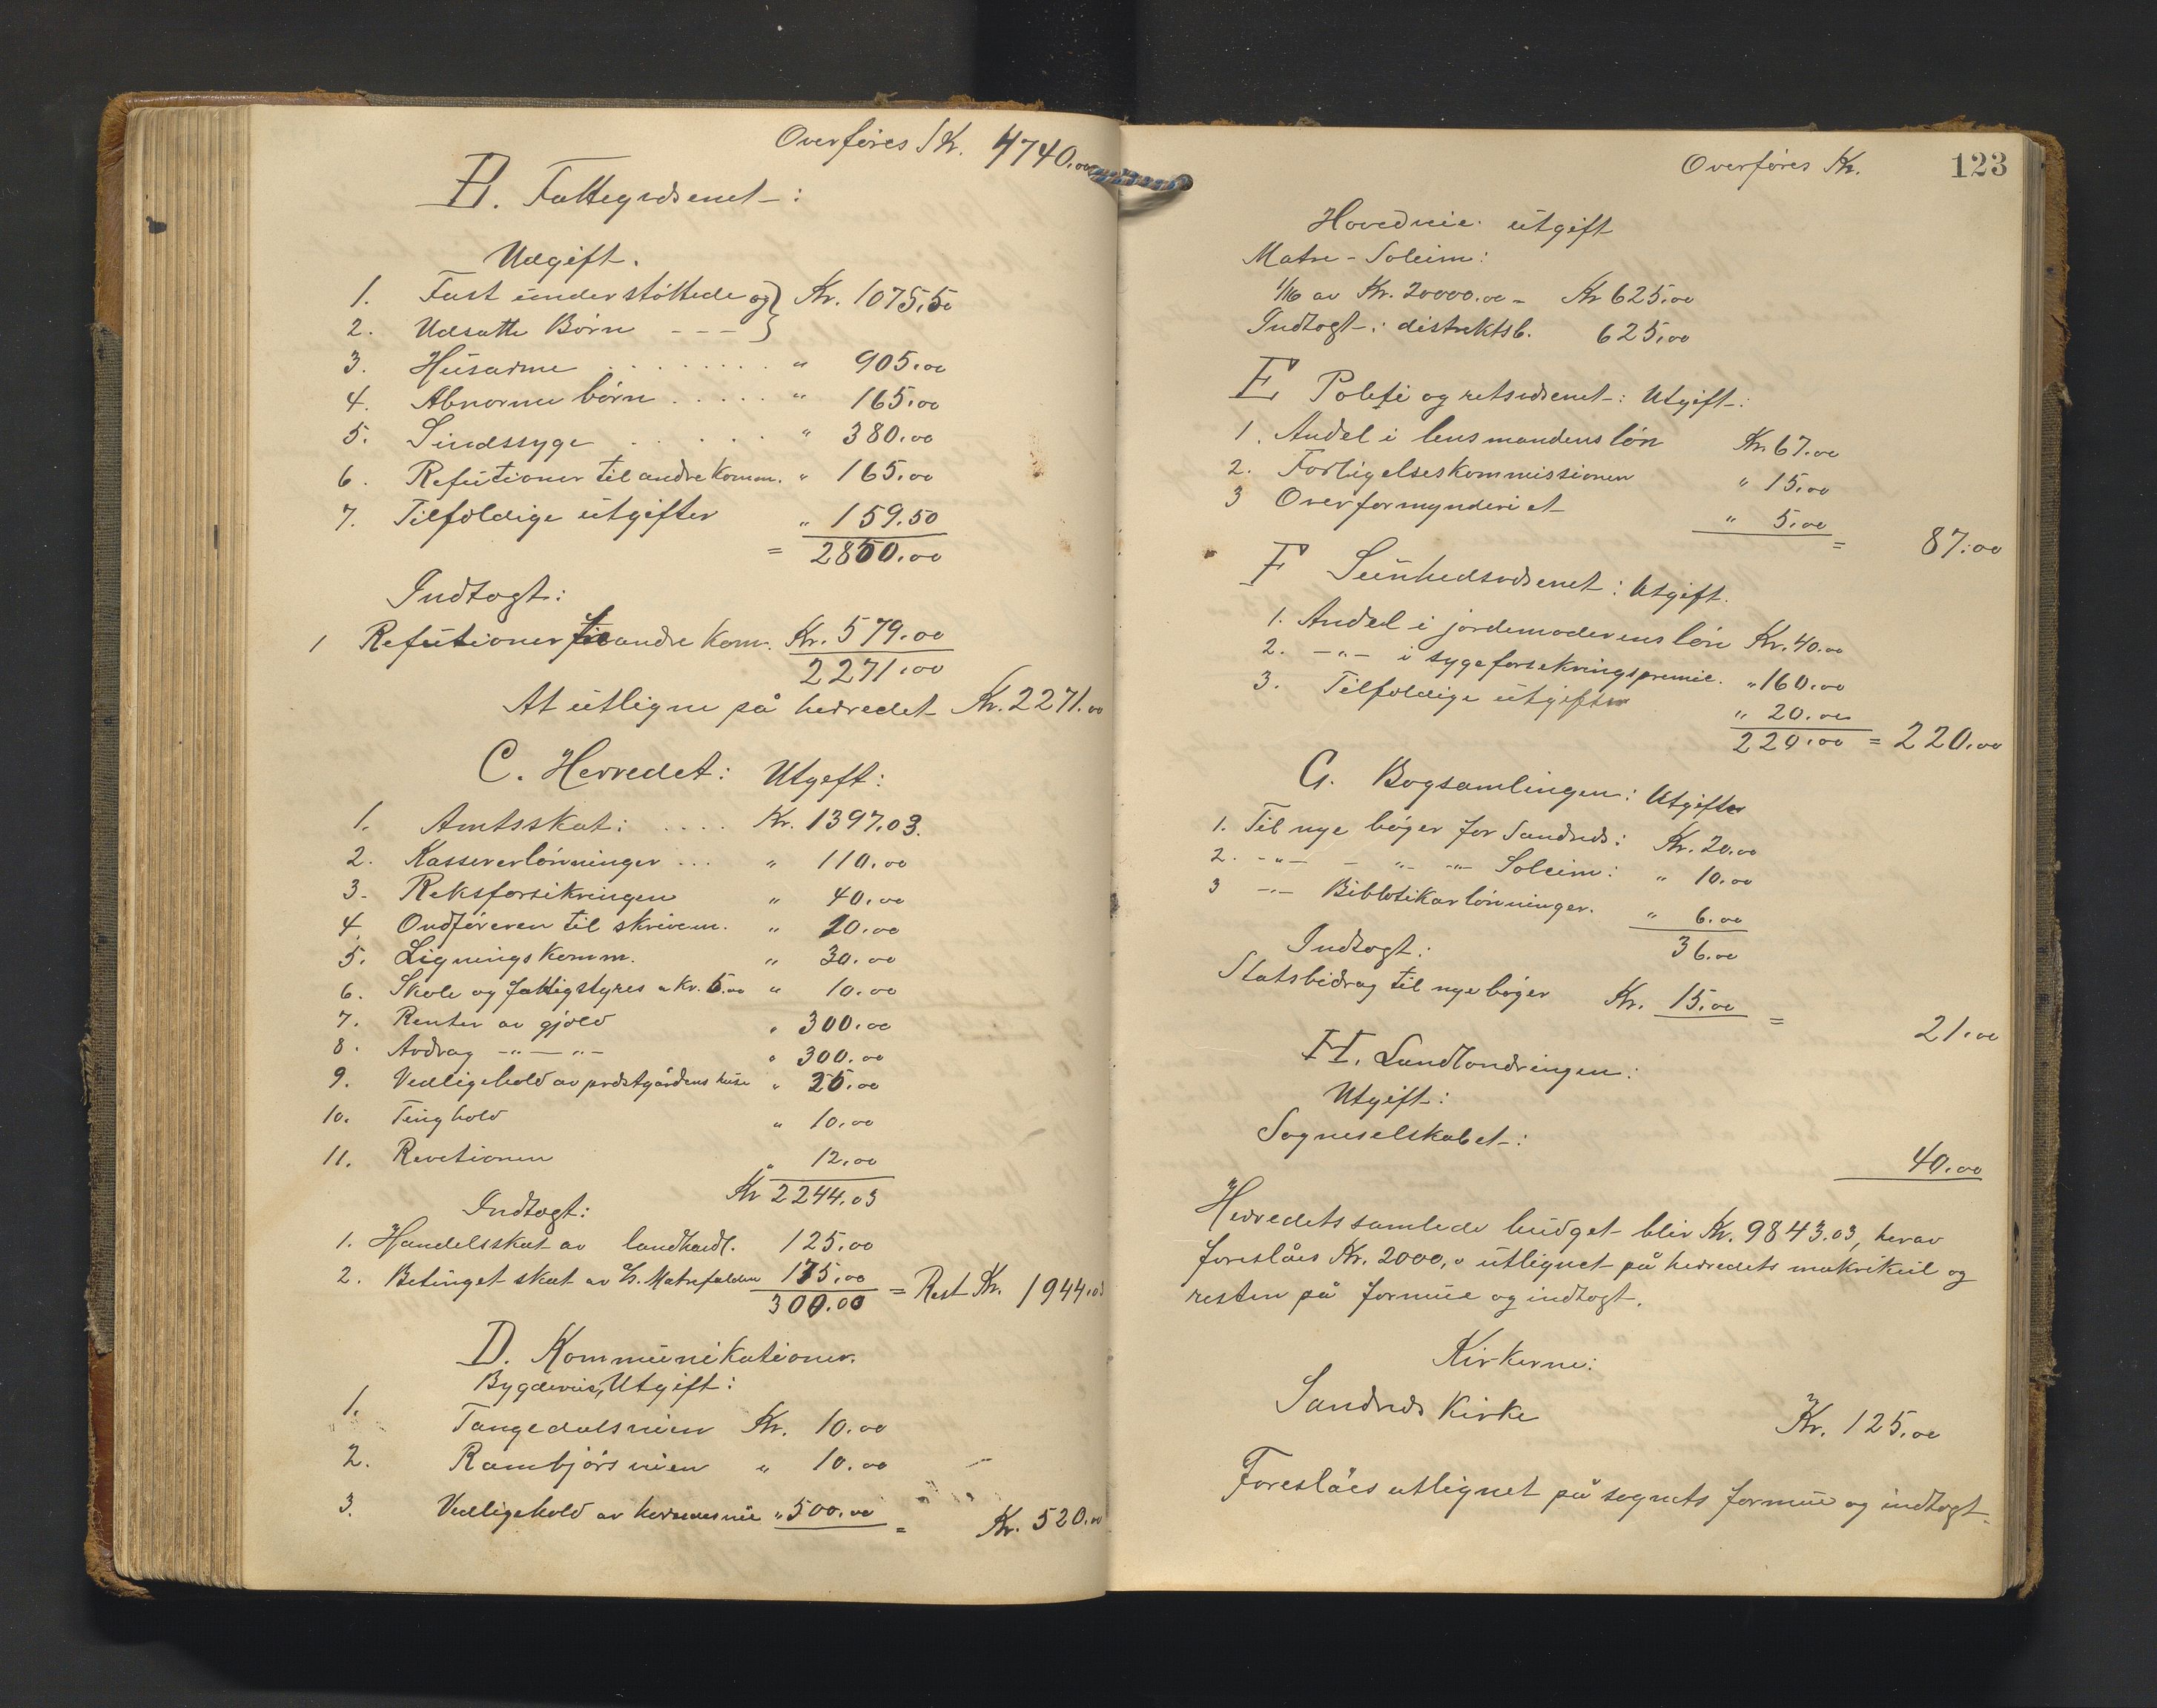 Overføres Kr. 4740.00
B. Fattigvæsenet:
Udgift.
1. Fast understøttede og } Kr. 1075,50
2. Udsatte Børn - - - }
3. Husarme . . . . . . . . " 905.00
4. Abnorme børn . . . . . " 165.00
5. Sindssyge . . . . . . " 380.00
6. Refutioner til andre komm. " 165.00
7. Tilfældige utgifter " 159.50
= 2850.00
Indtægt:
1 Refutioner fra andre kom. Kr. 579.00
2271.00
At utligne på herredet Kr. 2271.00
C. Herredet: Utgift:
1. Amtsskat: .... Kr. 1397.03.
2. Kassererlønninger ... " 110.00
3. Reksforsikringen " 40.00
4. Ordføreren til skrivem. " 10.00
5. Ligningskomm. " 30.00
6. Skole og fattigstyres a kr. 5.00 " 10.00
7. Renter av gjæld " 300.00
8. Avdrag -"- -"- " 300.00
9. Vedligehold av prestgårdens huse " 25.00
10. Tinghold " 10.00
11. Revetionen " 12.00
Kr 2244.03
Indtægt:
1. Handelsskat av landhandl. 125.00
2. Betinget skat av Matrefaldene 175.00
300.00 = Rest Kr. 1944.03
D. Kommunikationer.
Bygdeveie, Utgift:
1. Tangedalsveien Kr. 10.00
2. Rambjørsveien " 10.00
3. Vedligehold av herredsveie " 500.00 = Kr. 520.00
Overføres Kr. 123
Hovedveie. utgift
Matre - Soleim:
1/16 av Kr. 20000.00 - Kr 625.00
Indtægt: distriktsb. 625.00
E Politi og retsvæsenet: Utgift:
1. Andel i lensmandens løn Kr. 67.00
2. Forligelseskommissionen " 15.00
3 Overformynderiet " 5.00 = 87.00
F Sunhedsvæsenet: Utgift.
1. Andel i jordemoderens løn Kr. 40.00
2. -"- i sygeforsekringspremie. " 160.00
3. Tilfældige utgifter " 20.00
220.00 = 220.00
G. Bogsamlingen: Utgifter
1. Til nye bøger for Sandnæs: Kr. 20.00
2. -"- - "- -"- Soleim: " 10.00
3 -"- Biblotikarlønninger. " 6.00
36.00
Indtægt:
Statsbidrag til nye bøger Kr. 15.00 = 21.00
H. Landvændringen:
Utgift:
Sogneselskabet: 40.00
Herredets samlede budget blir Kr. 9843.03, herav
foreslåes Kr. 2000,0 utlignet på herredets matrikul og
resten på formue og indtægt.
Kirkerne:
Sandnæs Kirke Kr. 125.00
Foreslåes utlignet på sognets formue og indtægt.